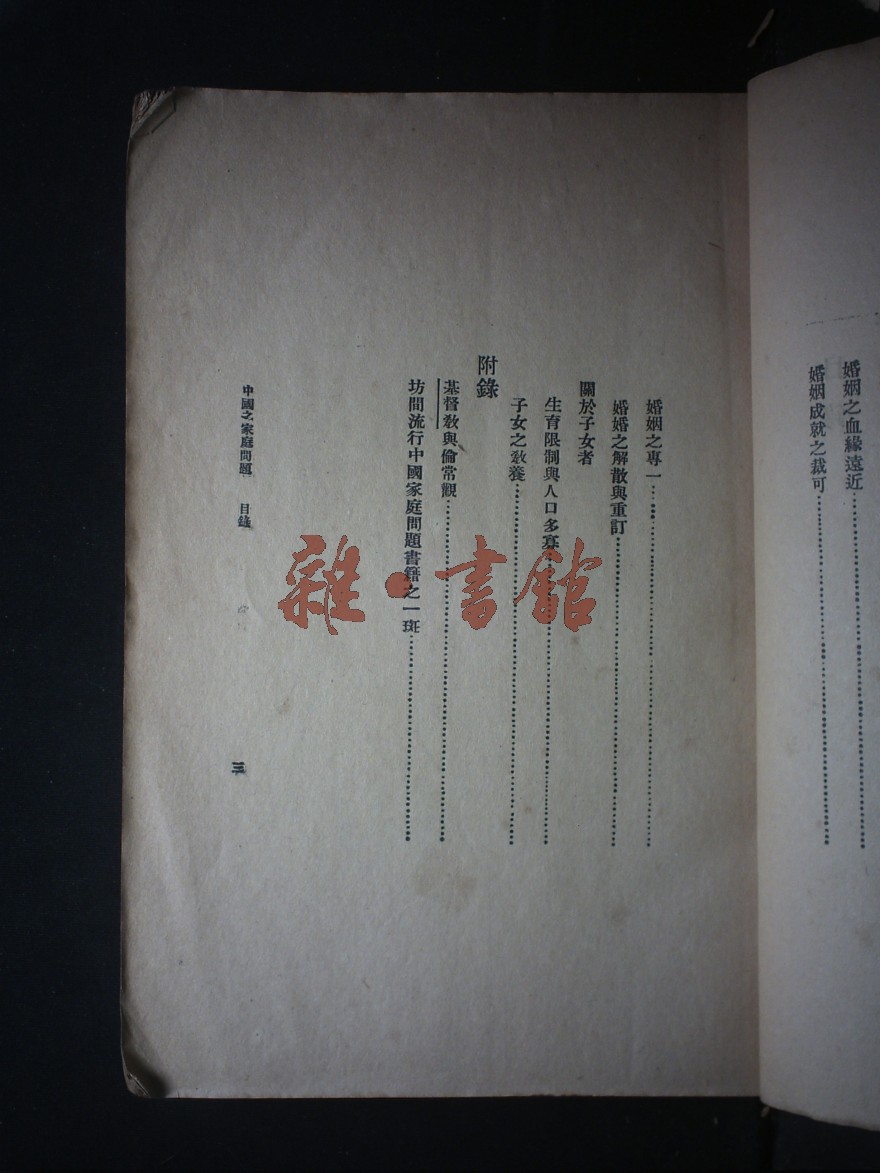 婚姻之血緣遠近
婚姻成就之裁可
婚姻之專一
婚婚之解散與重訂
關於子女者
生育限制與人口多寡
子女之敎養
附錄
基督敎與倫常觀
坊間流行中國家庭問題書籍之一斑
中國之家庭問題 目錄
三
雜·書館